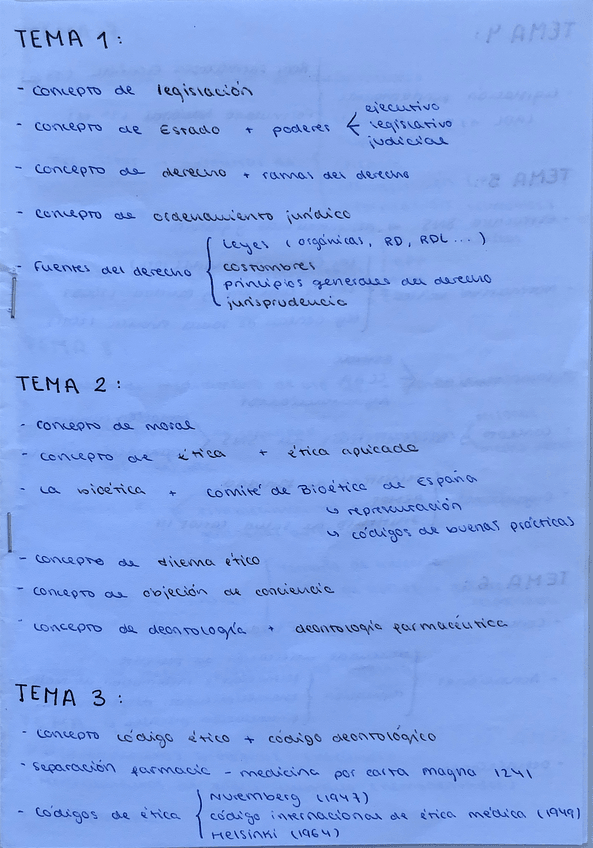 TEMA 1:
- concepto de legislación
- concepto de Estado + poderes < ejecutivo
legislativo
judicial
- concepto de derecho + ramas del derecho
- concepto de ordenamiento jurídico
- Fuentes del derecho { Leyes (orgánicas, RD, RDL...)
costumbres
principios generales del derecho
jurisprudencia
TEMA 2:
- concepto de moral
- concepto de ética + ética aplicada
- La bioética + comité de Bioética de España
↳ representación
↳ códigos de buenas prácticas
- concepto de dilema ético
- concepto de objeción de conciencia
- concepto de deontología + deontología farmacéutica
TEMA 3:
- concepto código ético + código deontológico
- separación farmacia - medicina por carta magna 1241
- códigos de ética { Nuremberg (1947)
código internacional de ética médica (1949)
Helsinki (1964)